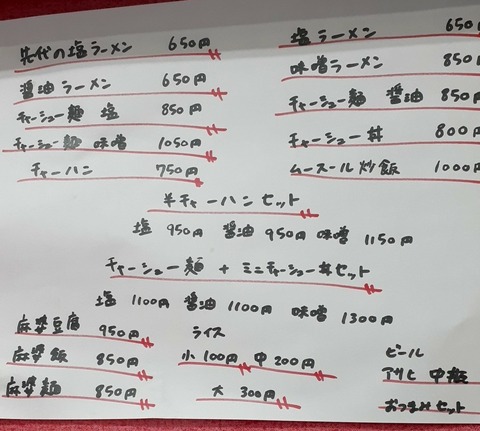 先代の塩ラーメン 650円
塩ラーメン 650円
醤油ラーメン 650円
味噌ラーメン 850円
チャーシュー麺 塩 850円
チャーシュー麺 醤油 850円
チャーシュー麺 味噌 1050円
チャーシュー丼 800円
チャーハン 750円
ムースール炒飯 1000円
半チャーハンセット
塩 950円 醤油 950円 味噌 1150円
チャーシュー麺 + ミニチャーシュー丼セット
塩 1100円 醤油 1100円 味噌 1300円
麻婆豆腐 950円
麻婆飯 850円
麻婆麺 850円
ライス
小 100円 中 200円
大 300円
ビール
アサヒ 中瓶
おつまみセット